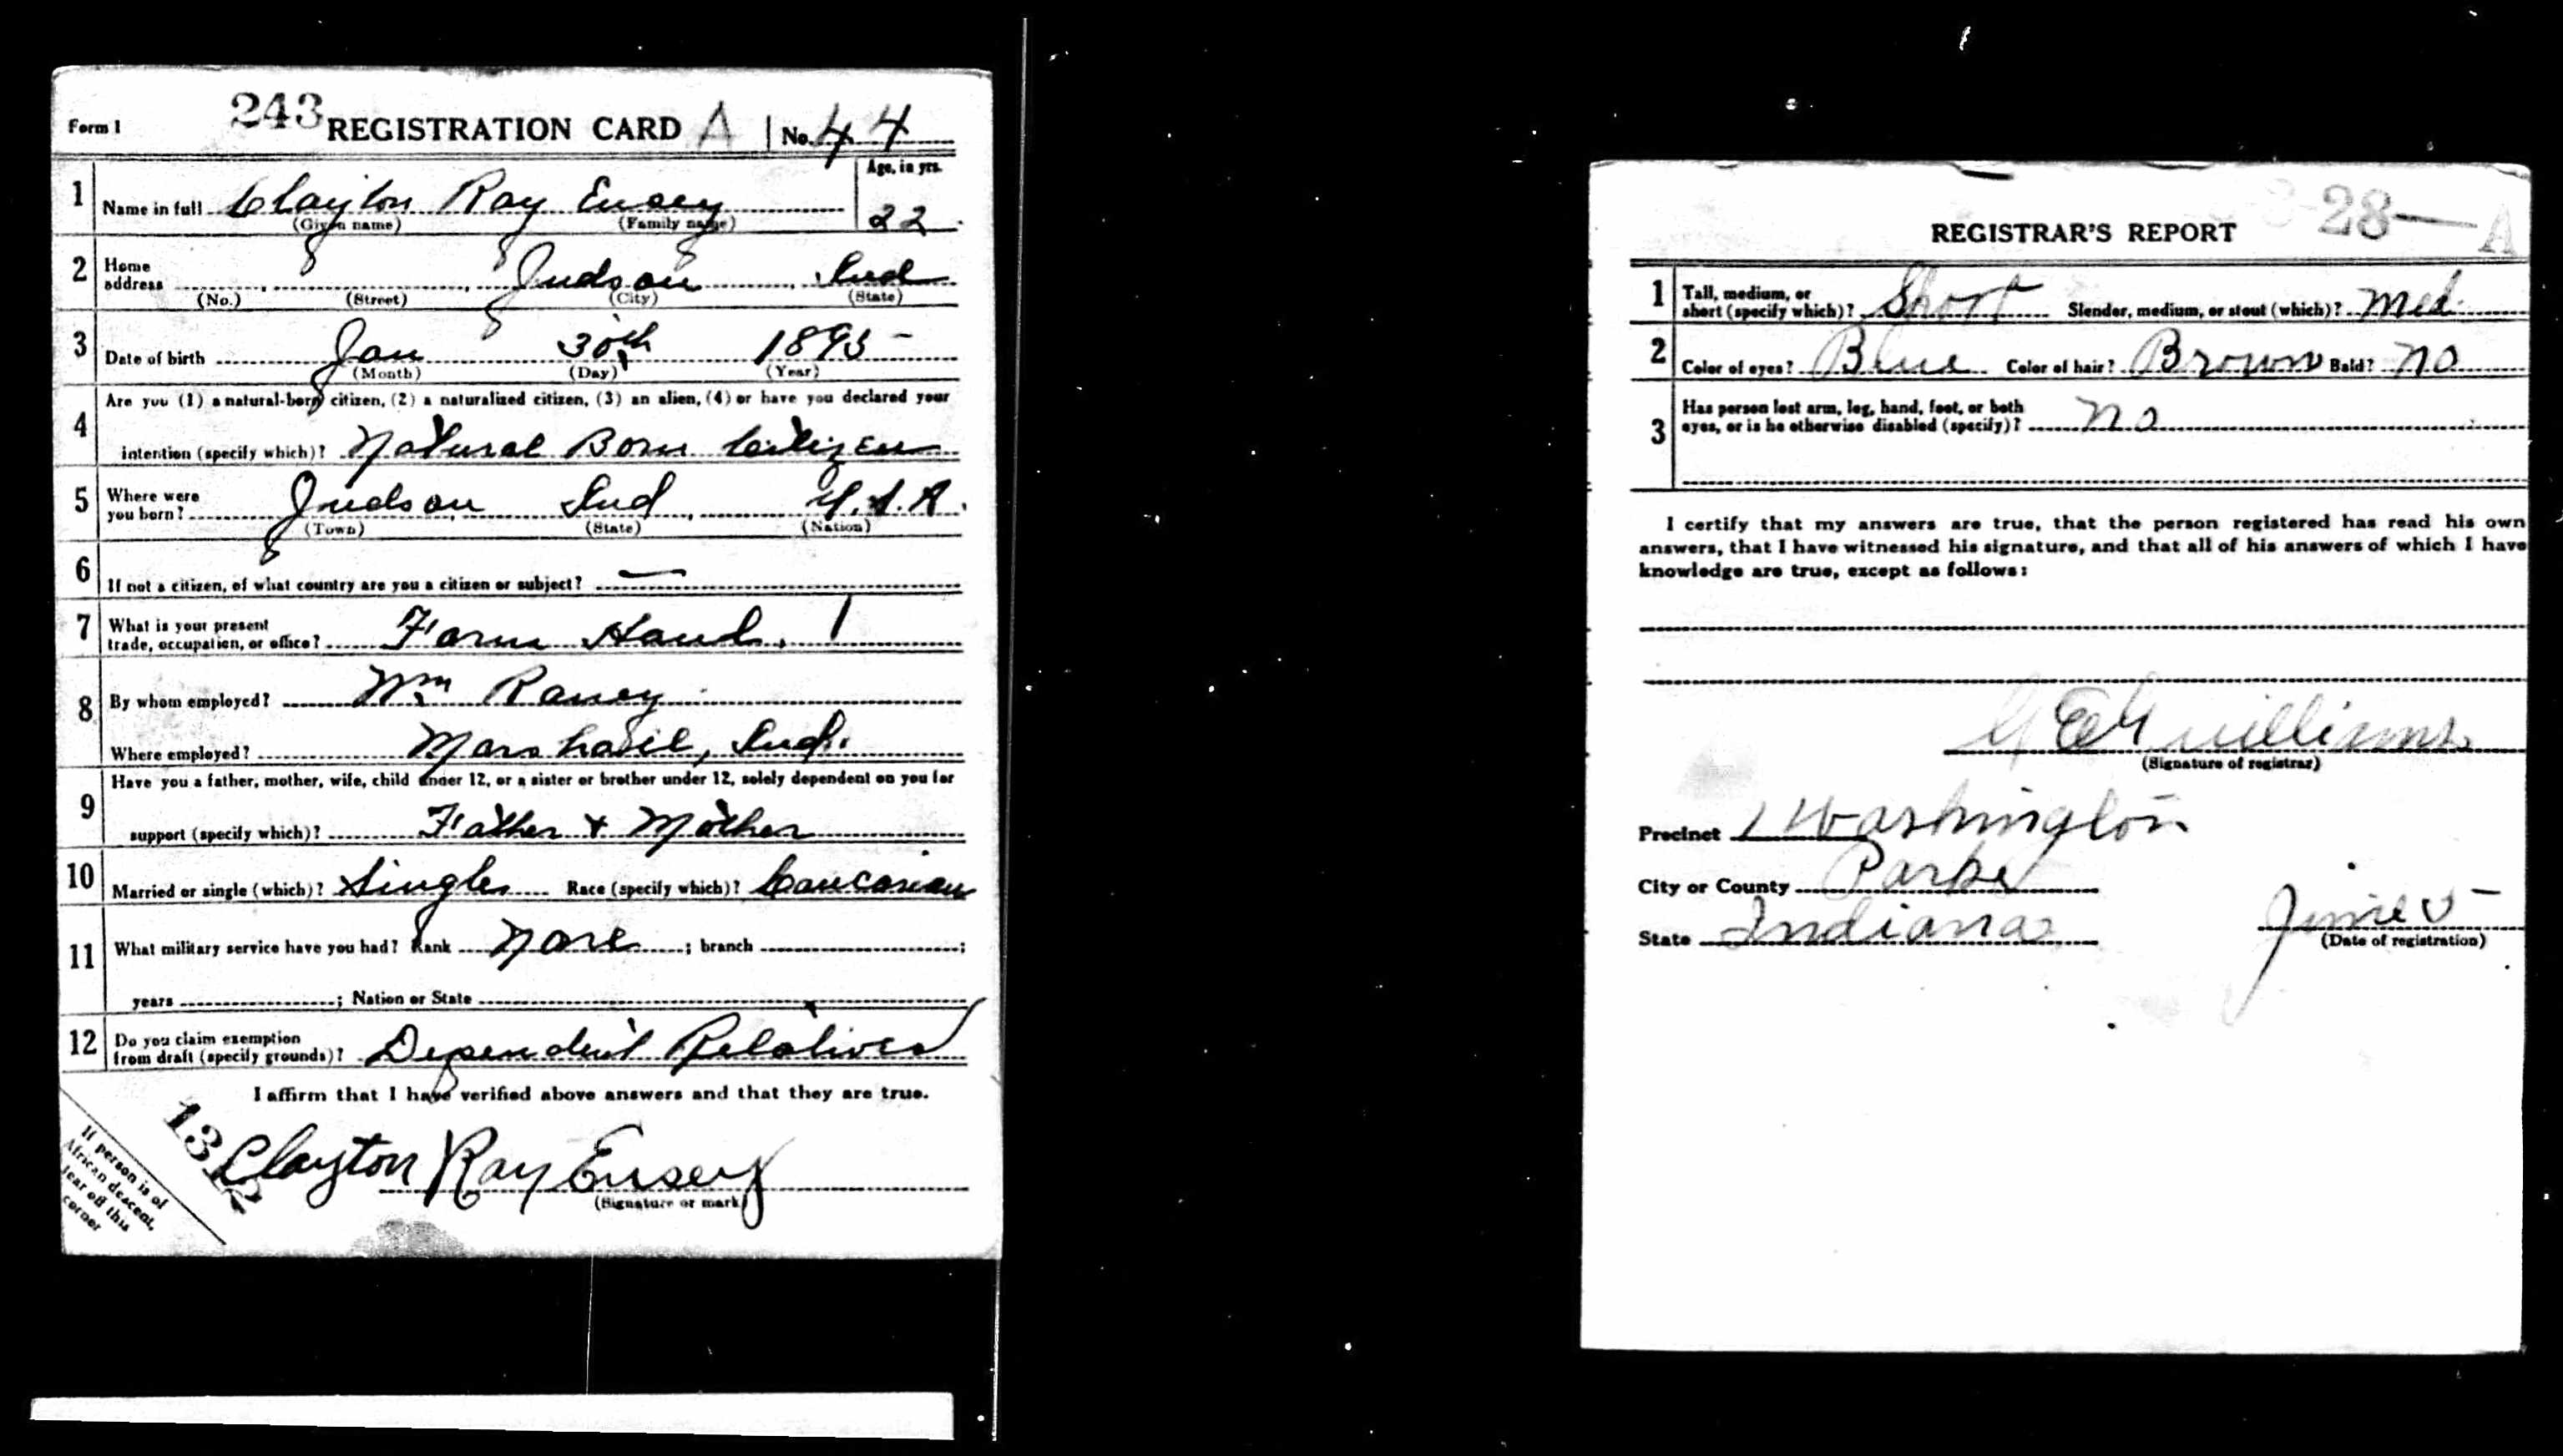 243 REGISTRATION CARD A No. 44
Form 1
Age, in yrs.
1 Name in full Clayton Ray Ensey 22
(Given name) (Family name)
2 Home address Judson, Ind
(No.) (Street) (City) (State)
3 Date of birth Jan 30th 1895
(Month) (Day) (Year)
4 Are you (1) a natural-born citizen, (2) a naturalized citizen, (3) an alien, (4) or have you declared your
intention (specify which)? Natural Born Citizen
5 Where were you born? Judson Ind U.S.A.
(Town) (State) (Nation)
6 If not a citizen, of what country are you a citizen or subject? —
7 What is your present
trade, occupation, or office? Farm Hand. 1
8 By whom employed? Wm Raney
Where employed? Marshall, Ind.
9 Have you a father, mother, wife, child under 12, or a sister or brother under 12, solely dependent on you for
support (specify which)? Father & Mother
10 Married or single (which)? Single Race (specify which)? Caucasian
11 What military service have you had? Rank None ; branch ;
years ; Nation or State
12 Do you claim exemption
from draft (specify grounds)? Dependent Relatives
I affirm that I have verified above answers and that they are true.
Clayton Ray Ensey
(Signature or mark)
If person is of
African descent,
tear off this
corner
28—A
REGISTRAR'S REPORT
1 Tall, medium, or
short (specify which)? Short Slender, medium, or stout (which)? Med.
2 Color of eyes? Blue Color of hair? Brown Bald? No
3 Has person lost arm, leg, hand, foot, or both
eyes, or is he otherwise disabled (specify)? No
I certify that my answers are true, that the person registered has read his own
answers, that I have witnessed his signature, and that all of his answers of which I have
knowledge are true, except as follows:
(Signature of registrar)
Precinct 1 Washington
City or County Parke
State Indiana June 5
(Date of registration)